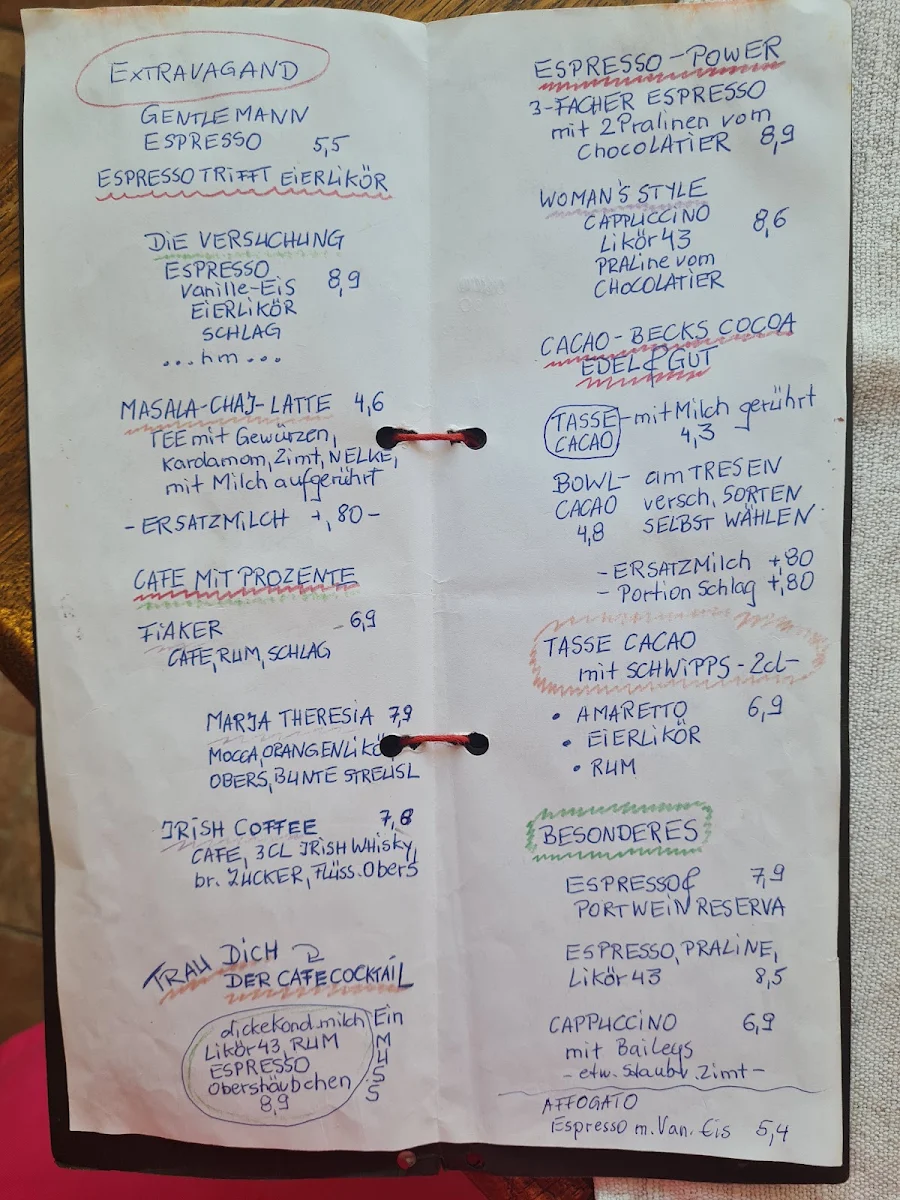 EXTRAVAGAND
GENTLEMANN
ESPRESSO 5,5
ESPRESSO TRIFFT EIERLIKÖR
DIE VERSUCHUNG
ESPRESSO
Vanille-Eis 8,9
EIERLIKÖR
SCHLAG
...hm...
MASALA-CHAJ-LATTE 4,6
TEE mit Gewürzen,
Kardamom, Zimt, NELKE,
mit Milch aufgerührt
- ERSATZMILCH +,80-
CAFE MIT PROZENTE
FIAKER 6,9
CAFE, RUM, SCHLAG
MARJA THERESIA 7,9
MOCCA, ORANGENLIKÖ
OBERS, BUNTE STREUSL
IRISH COFFEE 7,8
CAFE, 3CL IRISH WHISKY,
br. ZUCKER, Flüss. Obers
TRAU DICH
DER CAFECOCKTAIL
dickekond.milch
Likör 43, RUM
ESPRESSO
Obershäubchen
8,9
Ein
M
U
S
S
ESPRESSO-POWER
3-FACHER ESPRESSO
mit 2 Pralinen vom
CHOCOLATIER 8,9
WOMAN'S STYLE
CAPPUCCINO 8,6
Likör 43
PRALine vom
CHOCOLATIER
CACAO-BECKS COCOA
EDEL & GUT
TASSE - mit Milch gerührt
CACAO 4,3
BOWL- am TRESEN
CACAO versch. SORTEN
4,8 SELBST WÄHLEN
- ERSATZMilch +,80
- Portion Schlag +,80
TASSE CACAO
mit SCHWIPPS - 2cl-
• AMARETTO 6,9
• EIERLIKÖR
• RUM
BESONDERES
ESPRESSO & 7,9
PORTWEIN RESERVA
ESPRESSO, PRALINE,
Likör 43 8,5
CAPPUCCINO 6,9
mit Baileys
- etw. Staubz. Zimt -
AFFOGATO
Espresso m. Van. Eis 5,4